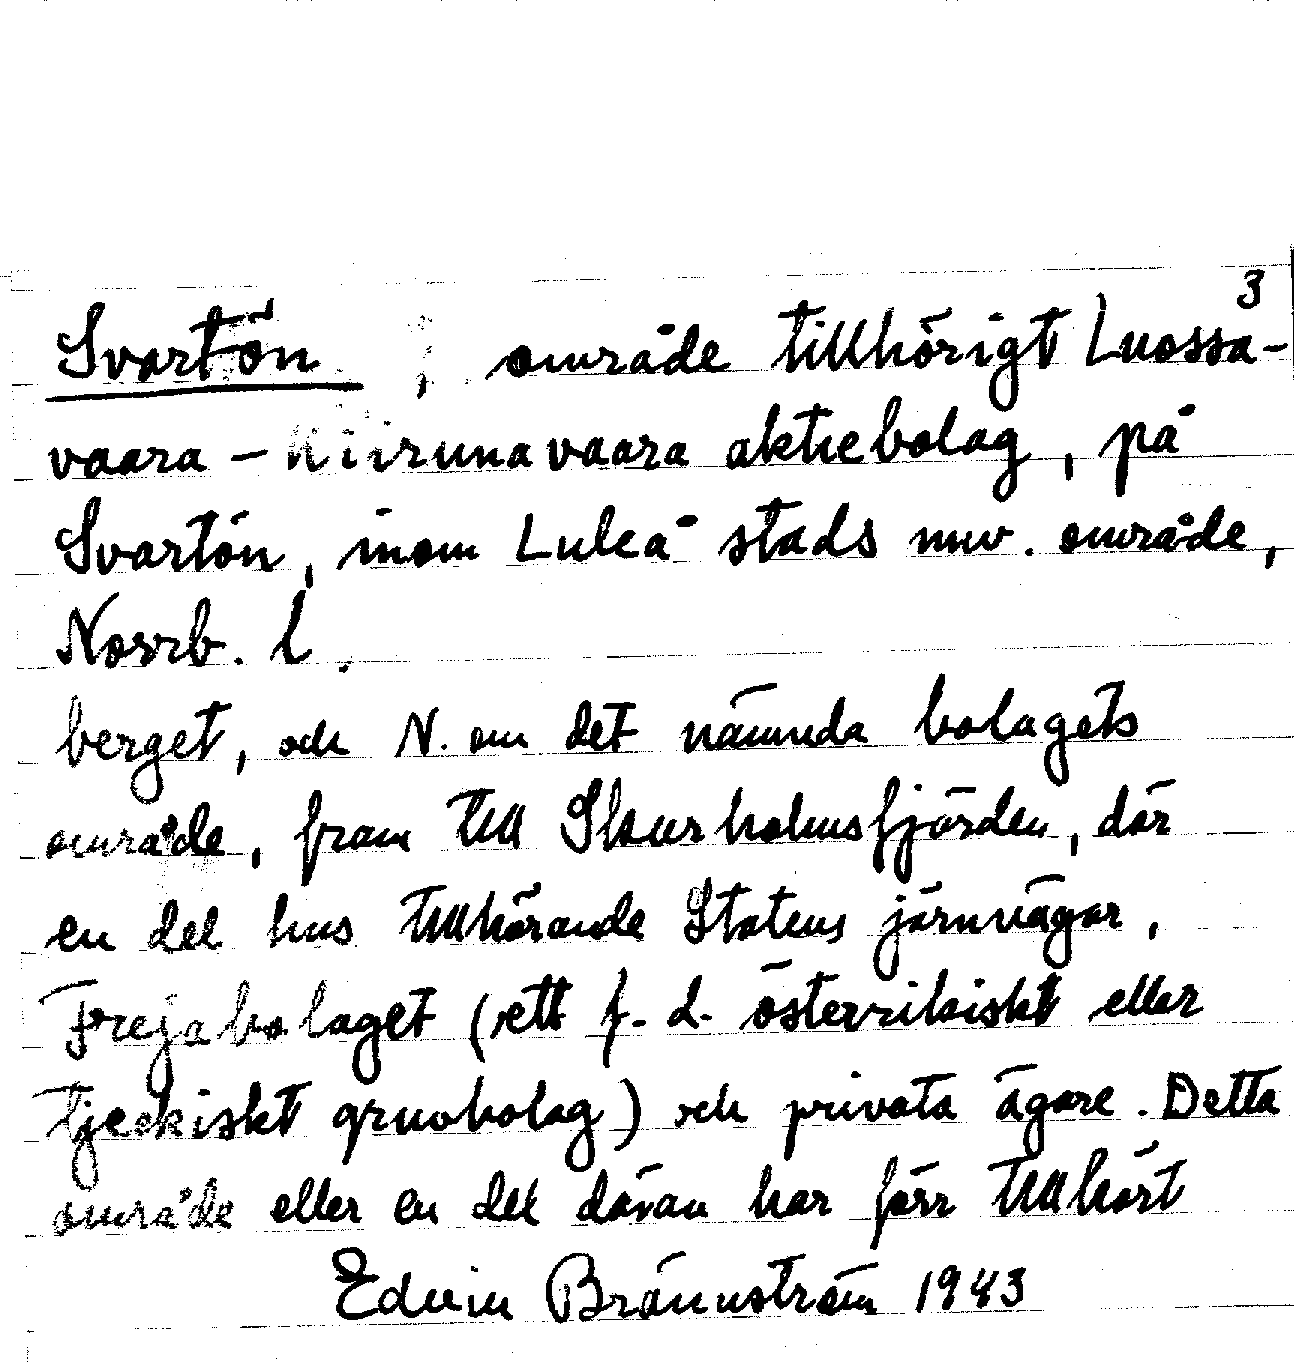 3
Svartön ; område tillhörigt Luossa-
vaara - Kiirunavaara aktiebolag, på
Svartön, inom Luleå stads nuv. område,
Norrb. l.
berget, och N. om det nämnda bolagets
område, fram till Skurholmsfjärden, där
en del hus tillhörande Statens järnvägar,
Frejabolaget (ett f. d. österrikiskt eller
tjeckiskt gruvbolag) och privata ägare. Detta
område eller en del därav har förr tillhört
Edvin Brännström 1943